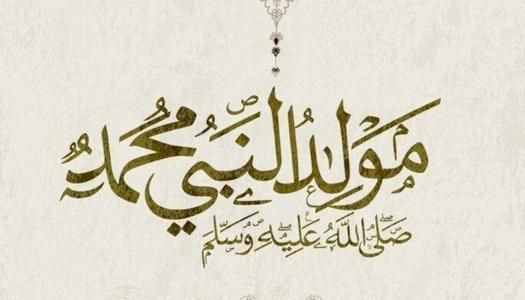 مَوْلِدُ النَّبِيِّ مُحَمَّدٍ
صَلَّى اللَّهُ عَلَيْهِ وَسَلَّمَ